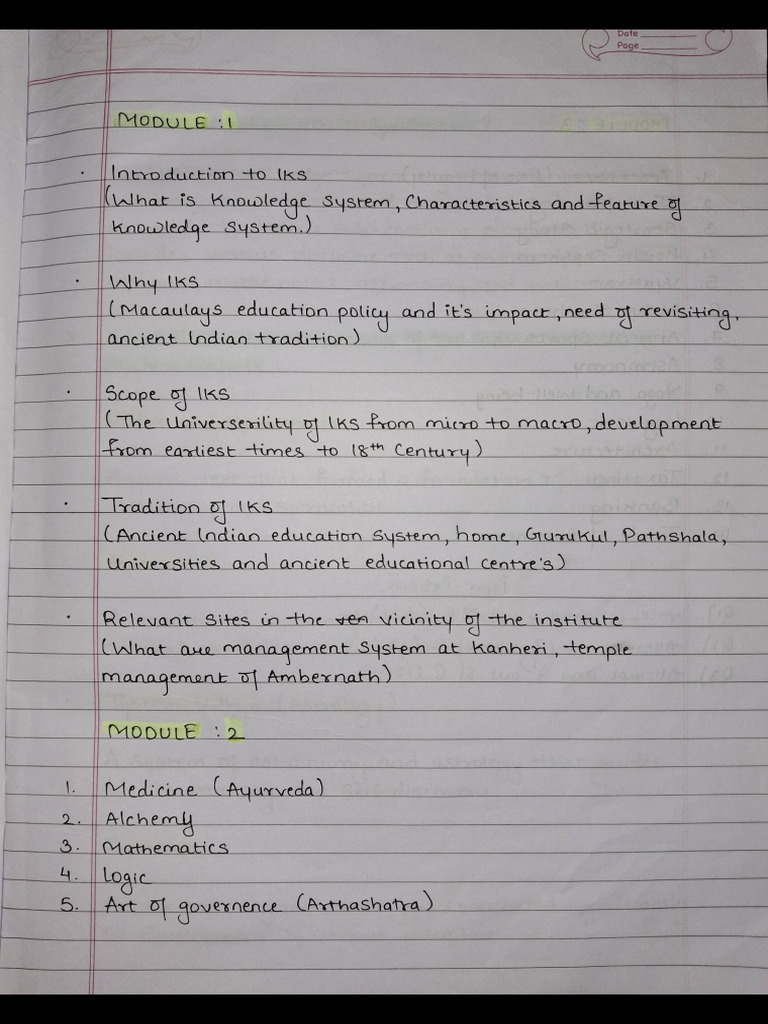 Date
Page
MODULE : 1
· Introduction to IKS
(What is Knowledge System, Characteristics and feature of
Knowledge System.)
· Why IKS
(Macaulays education policy and it's impact, need of revisiting,
ancient Indian tradition)
· Scope of IKS
(The Universerility of IKS from micro to macro, development
from earliest times to 18th Century)
· Tradition of IKS
(Ancient Indian education System, home, Gurukul, Pathshala,
Universities and ancient educational centre's)
· Relevant Sites in the vicinity of the institute
(What are management System at Kanheri, temple
management of Ambernath)
MODULE : 2
1. Medicine (Ayurveda)
2. Alchemy
3. Mathematics
4. Logic
5. Art of governence (Arthashatra)